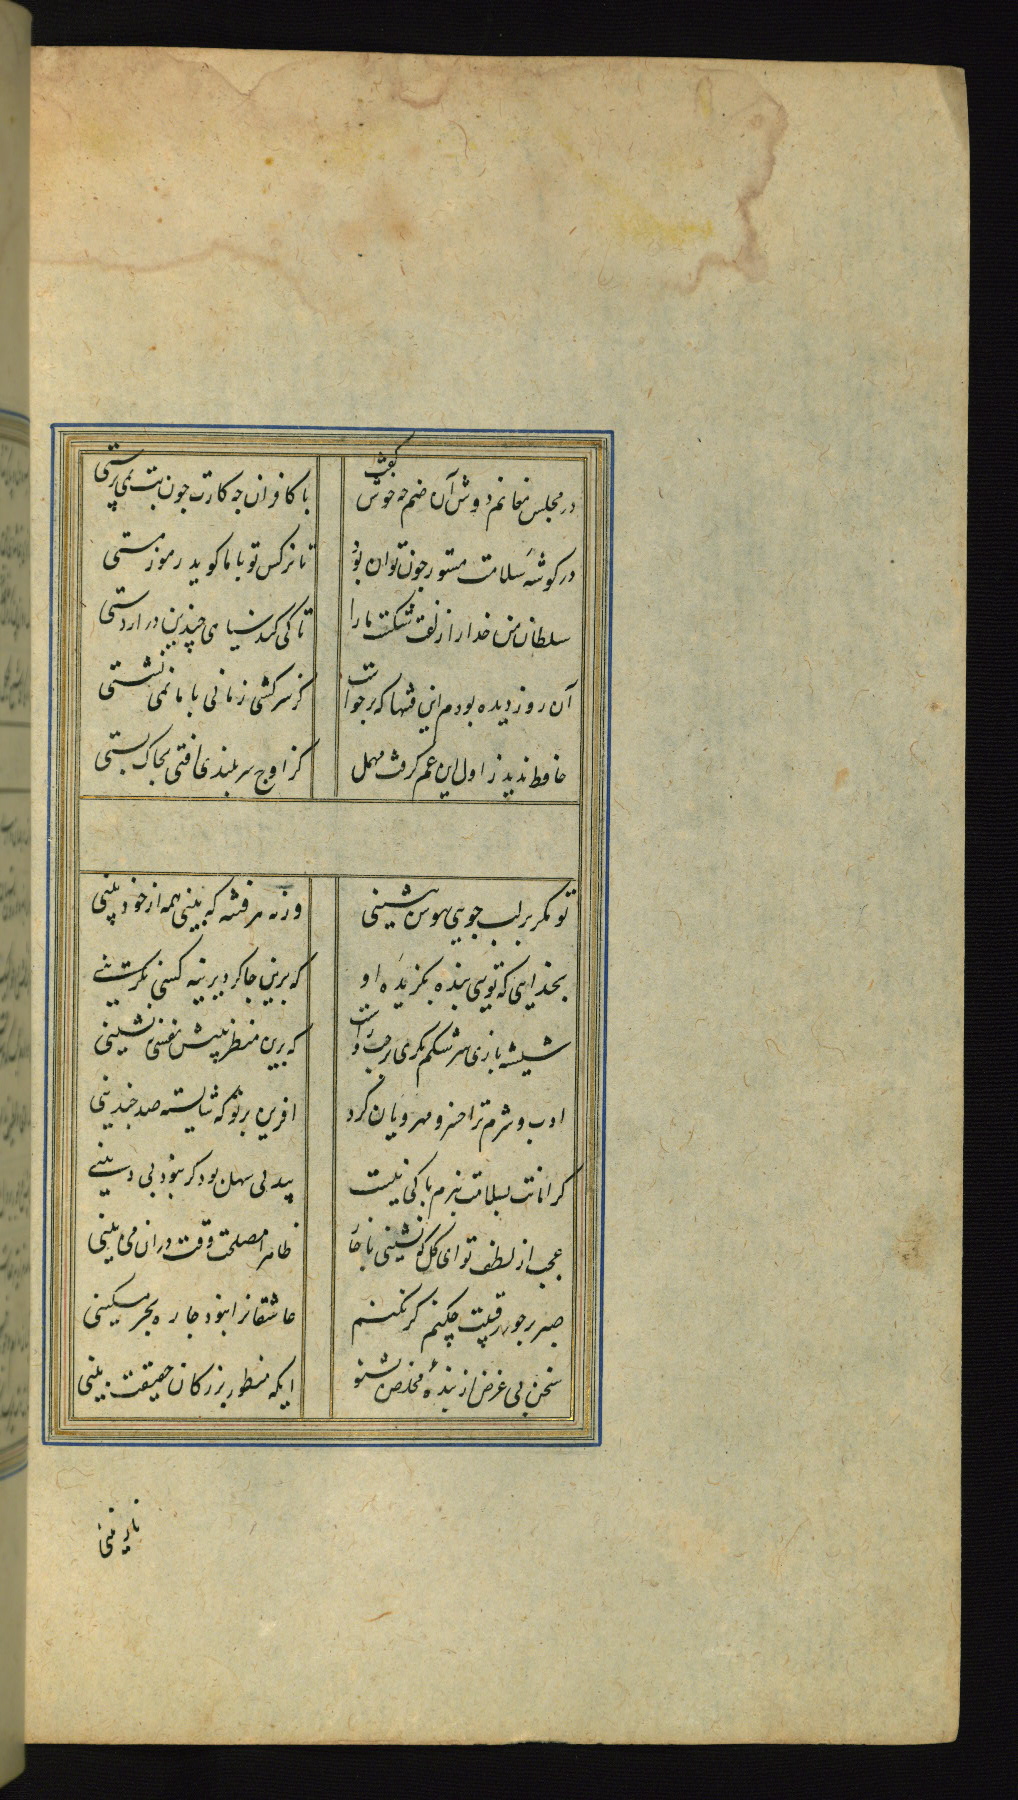 در مجلس مغانم دوش آن صنم چه خوش گفت
با کافران چه کارت چون بت نمی پرستی
در کوشهٔ سلامت مستور چون توان بود
تا نرکس تو با ما کوید رموز مستی
سلطان من خدا را زلفت شکست ما را
تا کی کند سیاهی چندین درازدستی
آن روز دیده بودم این فتنها که برخواست
کز سرکشی زمانی با ما نمی نشستی
حافظ ندید ز اول این غم کرفت مهمل
کز اوج سربلندی افتی بخاک پستی
تو مکر بر لب جویی بهوس بنشینی
ورنه هر فتنه که بینی همه از خود بینی
بخدایی که تویی بنده بکزیده او
که برین چاکر دیرینه کسی نکزینی
شیشه بازی سرشکم نکری از چپ و راست
که برین منظر بینش نفسی بنشینی
ادب و شرم ترا خسرو مهرویان کرد
آفرین بر تو که شایسته صد چندینی
کر امانت بسلامت ببرم باکی نیست
بیدلی سهل بود کر نبود بی دینی
عجب از لطف تو ای کل که نشینی با خار
ظاهرا مصلحت وقت در آن می بینی
صبر بر جور رقیبت چکنم کر نکنم
عاشقانرا نبود چاره بجز مسکینی
سخن بی غرض از بندهٔ مخلص بشنو
ایکه منظور بزرکان حقیقت بینی
نازنینی